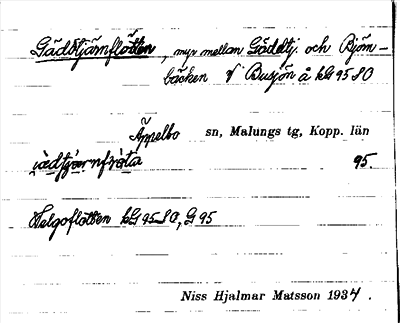 Gäddtjärnflöten, myr mellan Gäddtj. och Björn-
bäcken V Busjön å kG 95 SO
Äppelbo sn, Malungs tg, Kopp. län
95.
Helgeflöten kG 95 SO, G 95
Niss Hjalmar Matsson 1934.